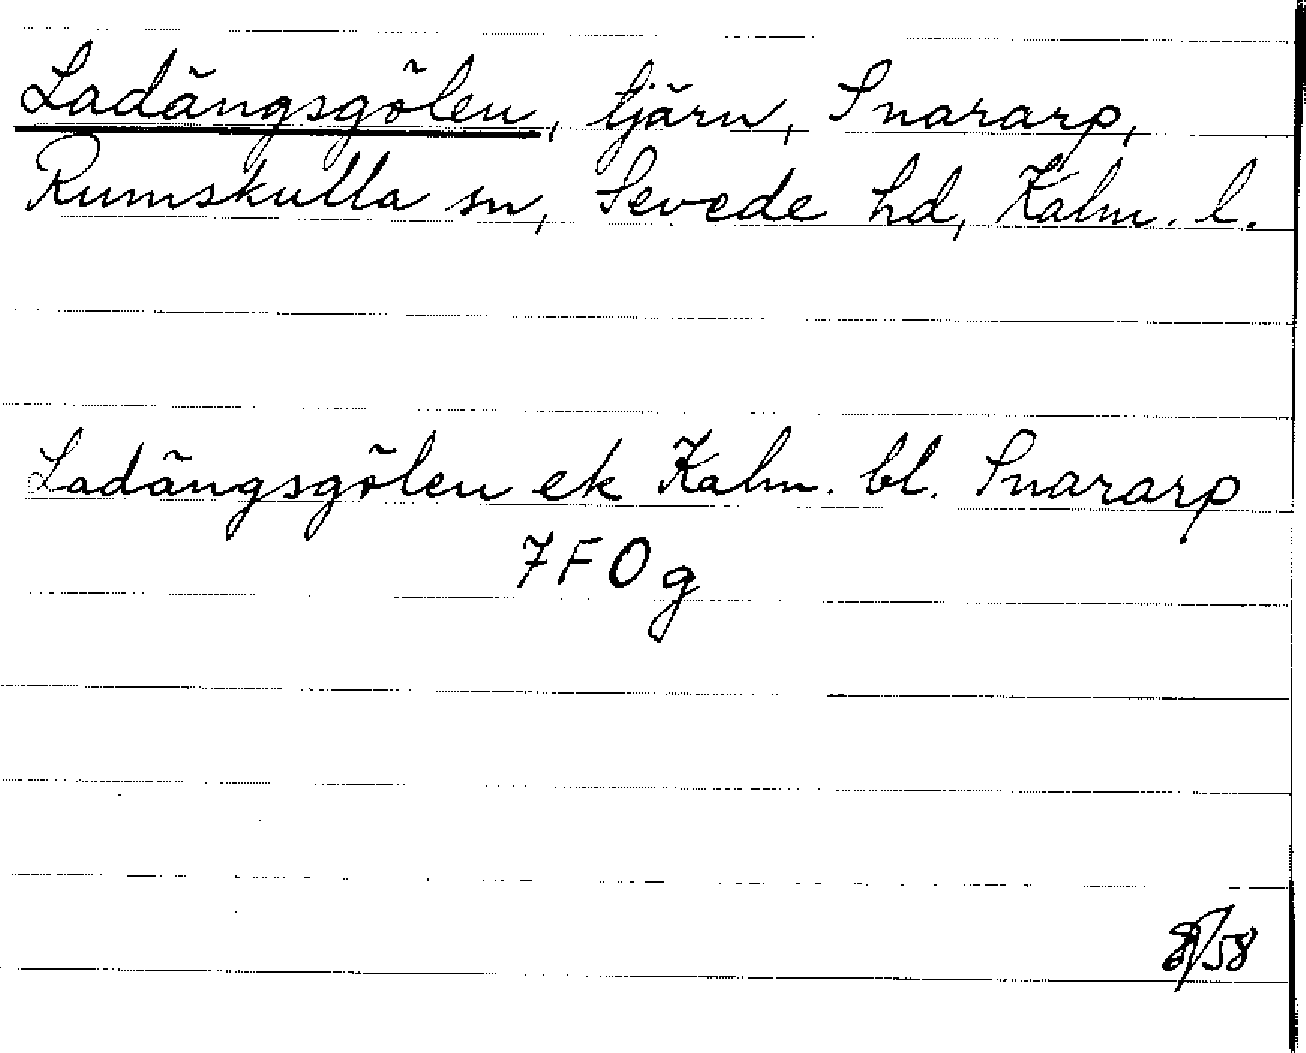 Ladängsgölen, tjärn, Snararp,
Rumskulla sn, Sevede hd, Kalm. l.
Ladängsgölen ek Kalm. bl. Snararp
7F0g